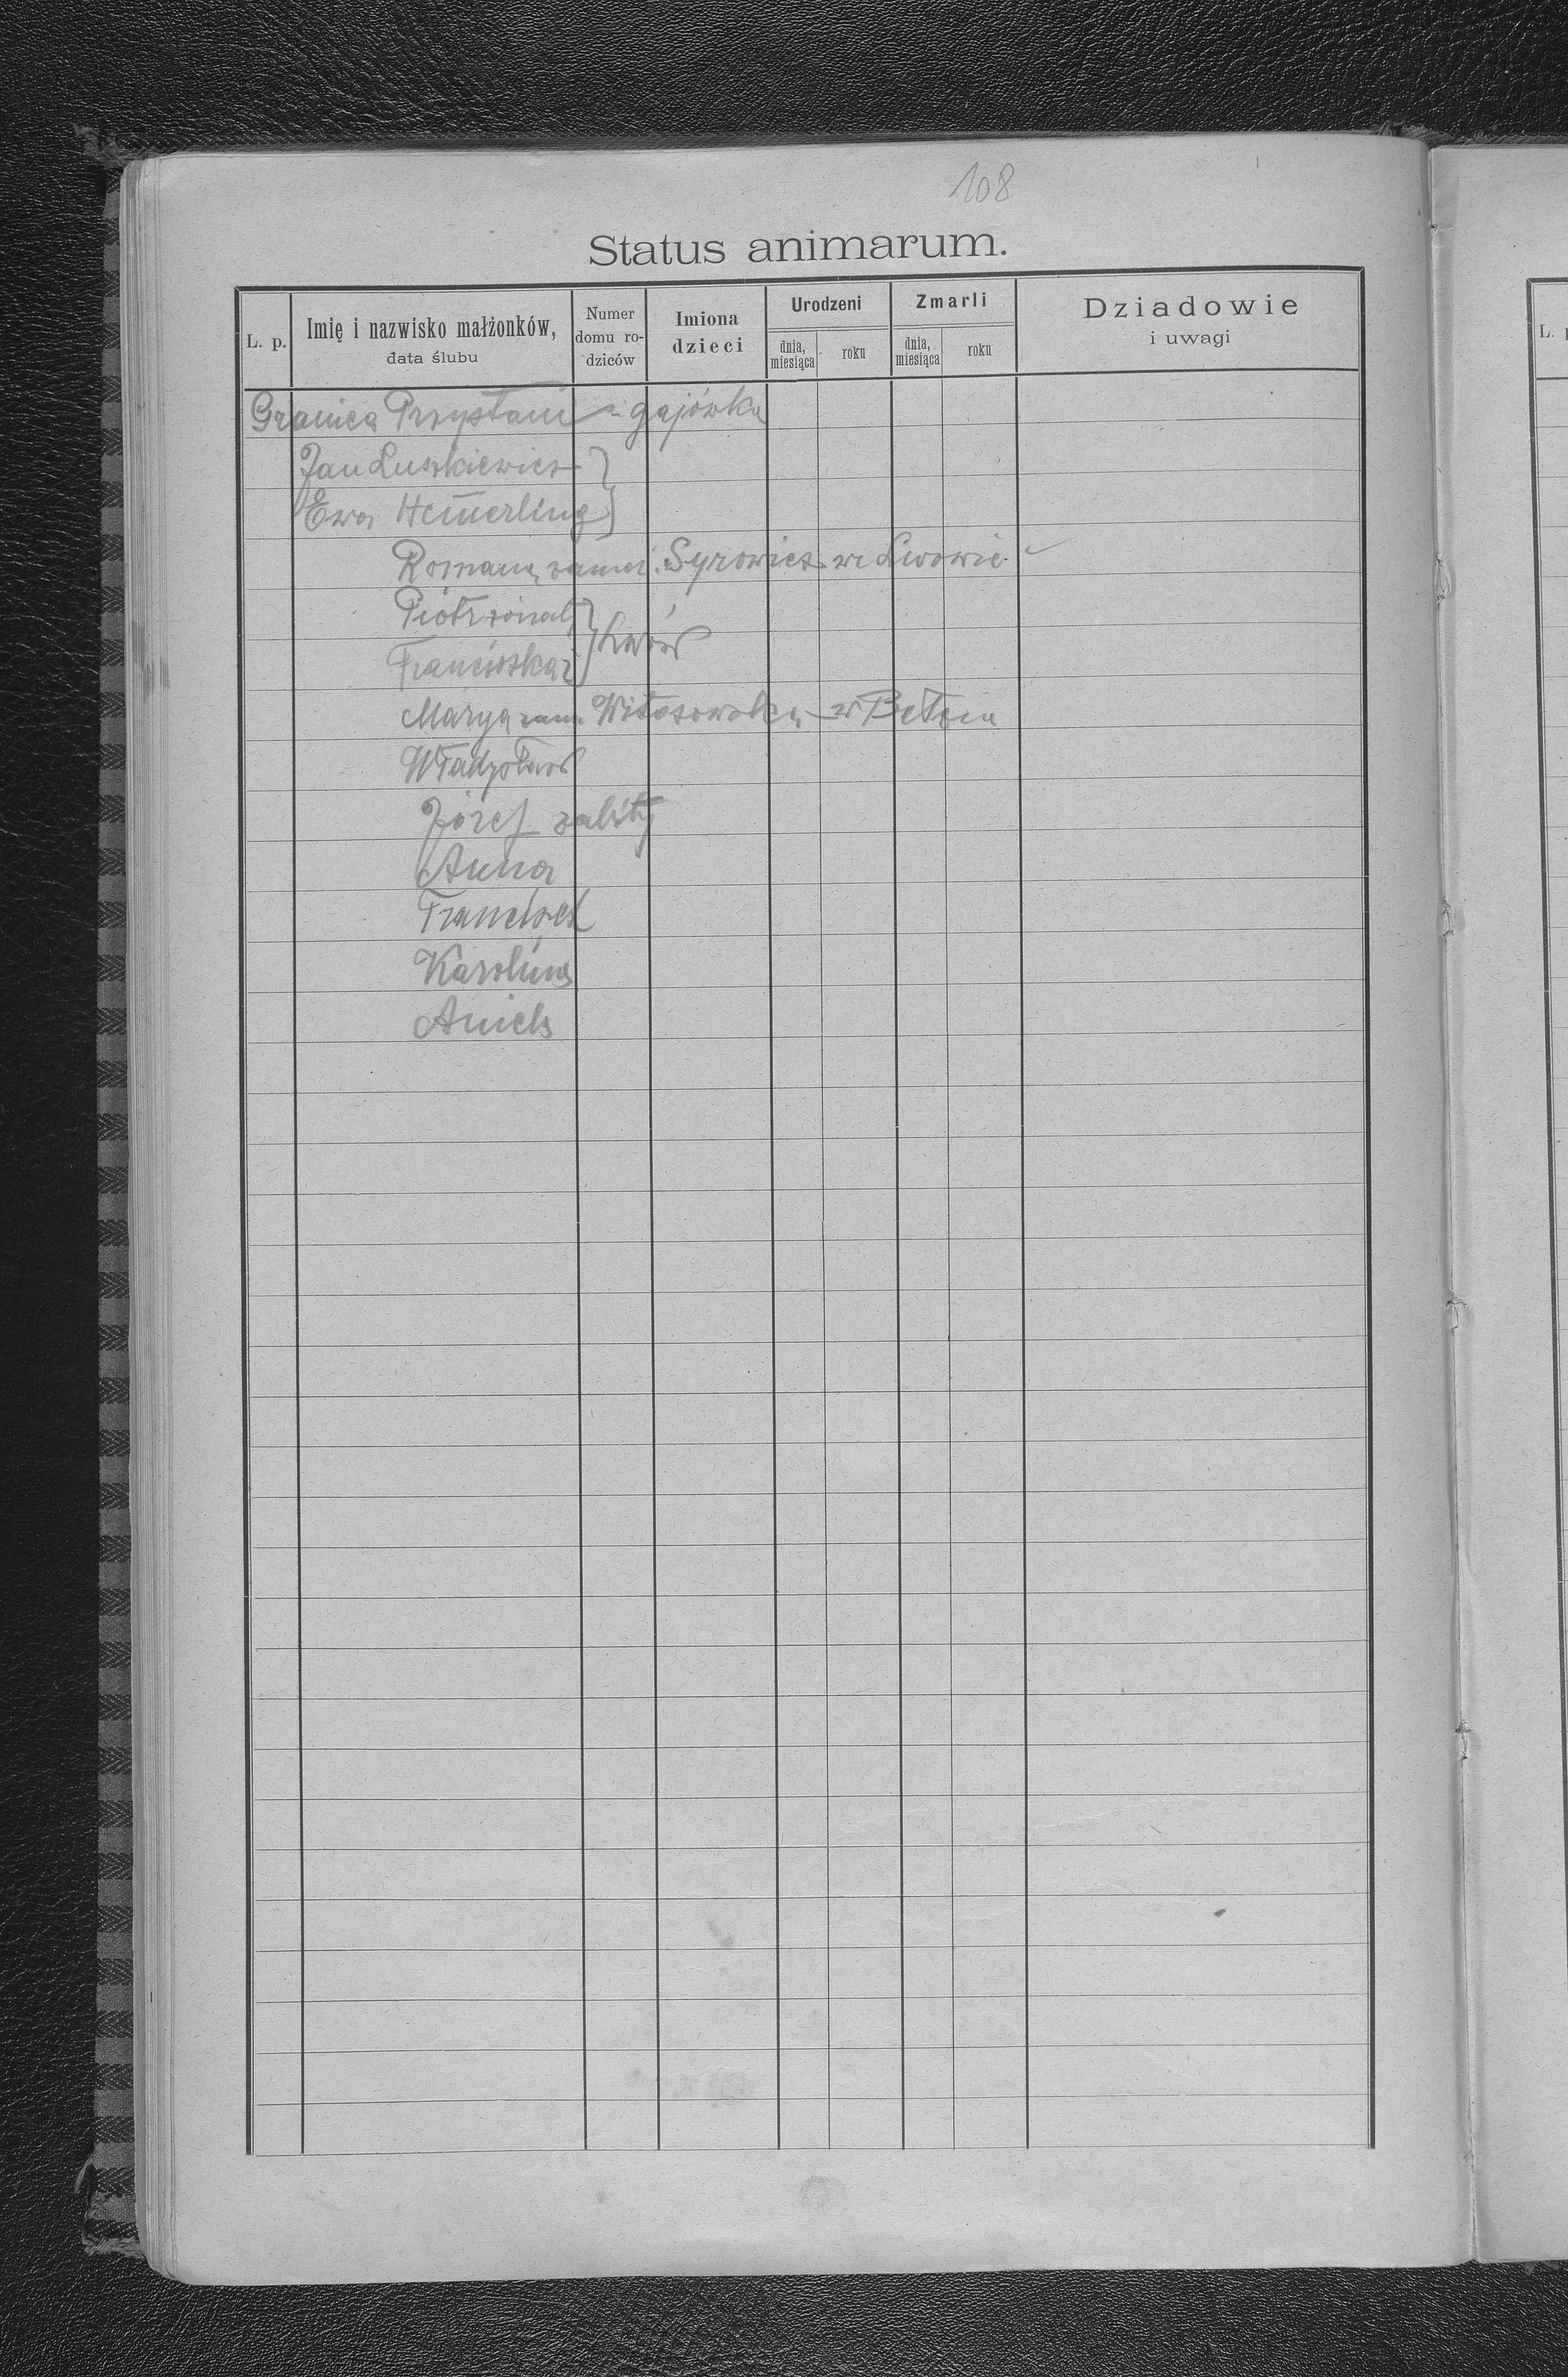 108
Status animarum.
L. p.
Imię i nazwisko małżonków,
data ślubu
Numer
domu ro-
dziców
Imiona
dzieci
Urodzeni
dnia,
miesiąca
roku
Zmarli
dnia,
miesiąca
roku
Dziadowie
i uwagi
L. p
Granica Przystani - gajówka
Jan Luszkiewicz
Ewa Hem̄erling
Romana Syrowicz we Lwowie
Piotr
Franciszka Lwów
Marya zam. w Bełzcu
Władysław
Józef zabity
Anna
Franciszek
Karolina
Aniela